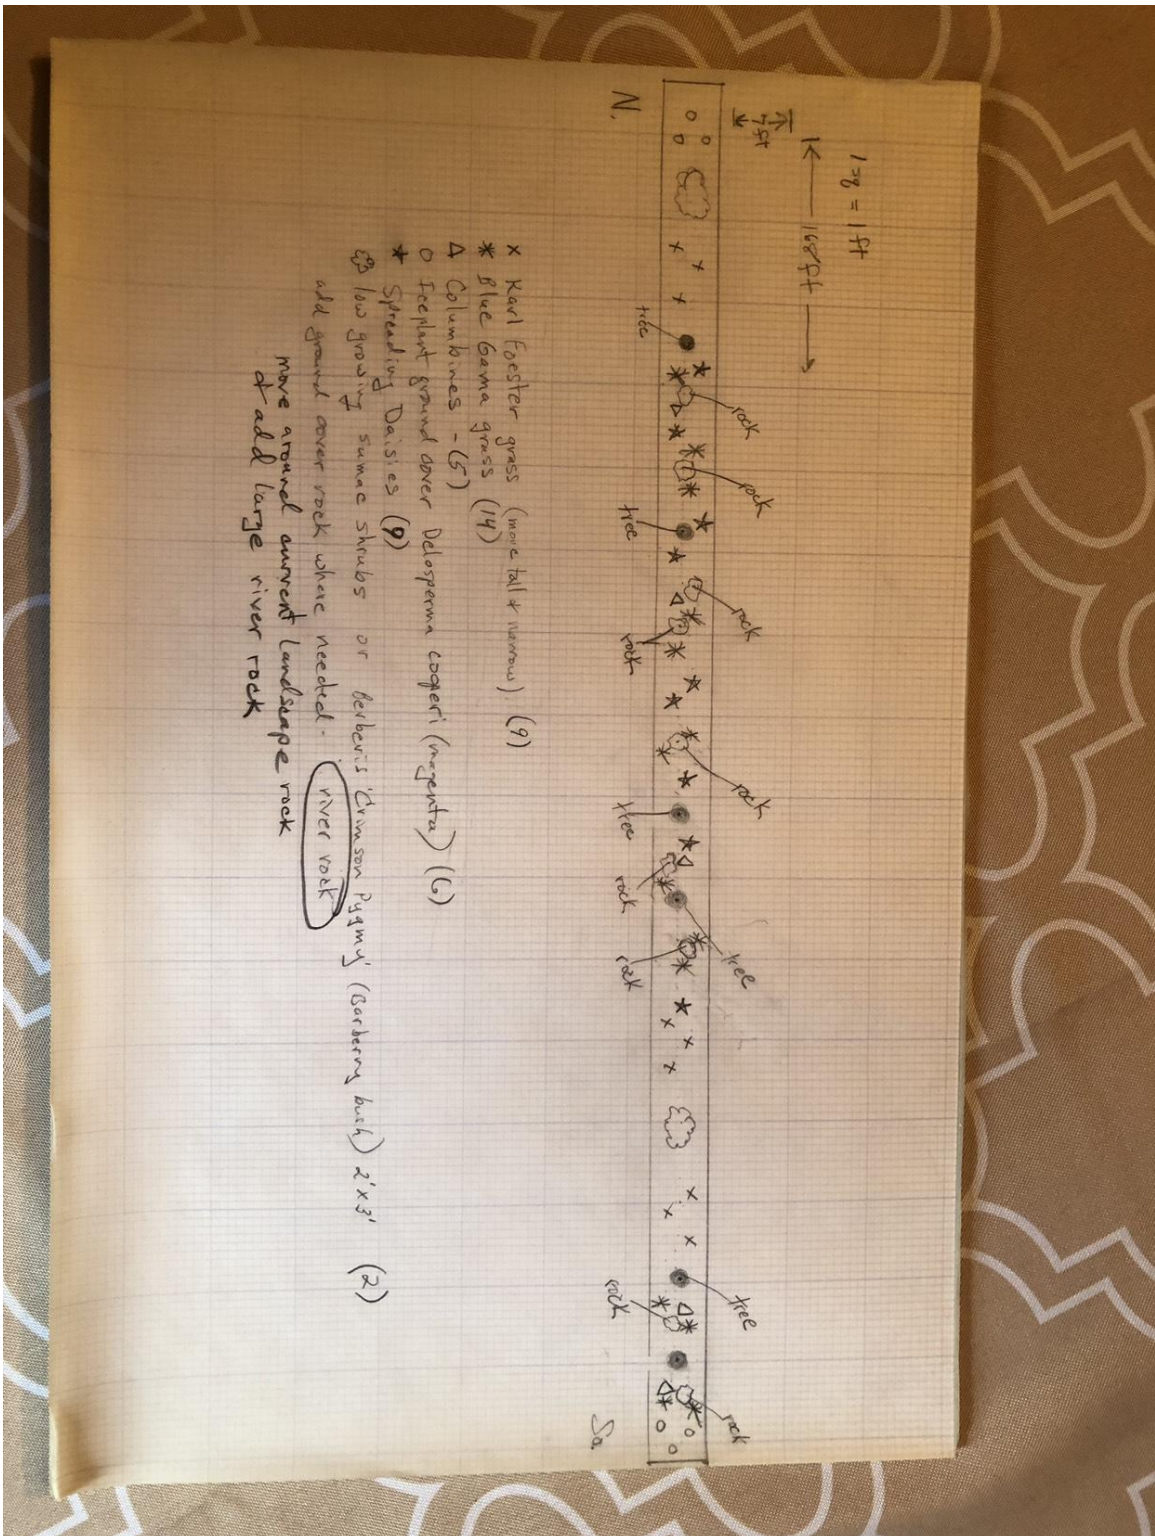 1 sq = 1 ft
168 ft
7 ft
N.
So.
tree
rock
rock
tree
rock
rock
rock
tree
rock
tree
rock
tree
rock
rock
x Karl Foester grass (more tall & narrow) (9)
* Blue Gama grass (14)
Δ Columbines - (5)
o Iceplant ground cover Delosperma cooperi (magenta) (6)
★ Spreading Daisies (9)
low growing sumac shrubs or Berberis 'Crimson Pygmy' (Barberry bush) 2' x 3' (2)
add ground cover rock where needed - river rock
move around current landscape rock
& add large river rock